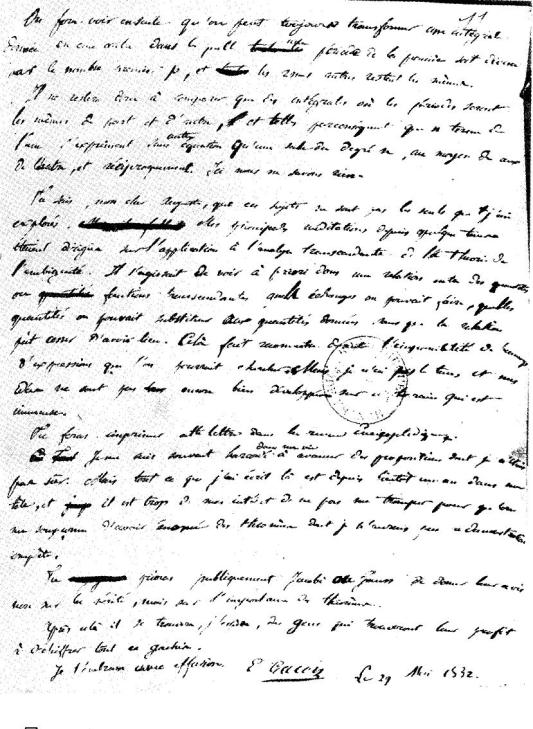 11
On pourra voir ensuite qu'on peut toujours transformer une intégrale
donnée en une autre dans laquelle une période de la première soit divisée
par le nombre premier p, et les autres restent les mêmes.
Il ne restera donc à comparer que des intégrales où les périodes seront
les mêmes de part et d'autre, et telles par conséquent que n termes de
l'une s'expriment sans autre équation qu'une seule du degré n, au moyen de ceux
de l'autre, et réciproquement. Ici nous ne savons rien.
Tu sais, mon cher Auguste, que ces sujets ne sont pas les seuls que j'aie
explorés. Mes principales méditations depuis quelque temps
étaient dirigées sur l'application à l'analyse transcendante de la théorie de
l'ambiguité. Il s'agissait de voir à priori dans une relation entre des quantités
ou fonctions transcendantes quels échanges on pouvait faire, quelles
quantités on pouvait substituer aux quantités données sans que la relation
pût cesser d'avoir lieu. Cela fait reconnaitre l'impossibilité de beaucoup
d'expressions que l'on pourrait chercher. Mais je n'ai pas le tems et mes
idées ne sont pas encore bien développées sur ce terrain qui est
immense.
Tu feras imprimer cette lettre dans la revue encyclopédique.
Je me suis souvent hasardé dans ma vie à avancer des propositions dont je n'étais
pas sûr. Mais tout ce que j'ai écrit là est depuis bientôt un an dans ma
tête, et il est trop de mon intérêt de ne pas me tromper pour qu'on
me soupçonne d'avoir énoncé des théorèmes dont je n'aurais pas la démonstration
complète.
Tu prieras publiquement Jacobi ou Gauss de donner leur avis
non sur la vérité, mais sur l'importance des théorèmes.
Après cela il se trouvera, j'espère, des gens qui trouveront leur profit
à déchiffrer tout ce gachis.
Je t'embrasse avec effusion. E Galois Le 29 Mai 1832.